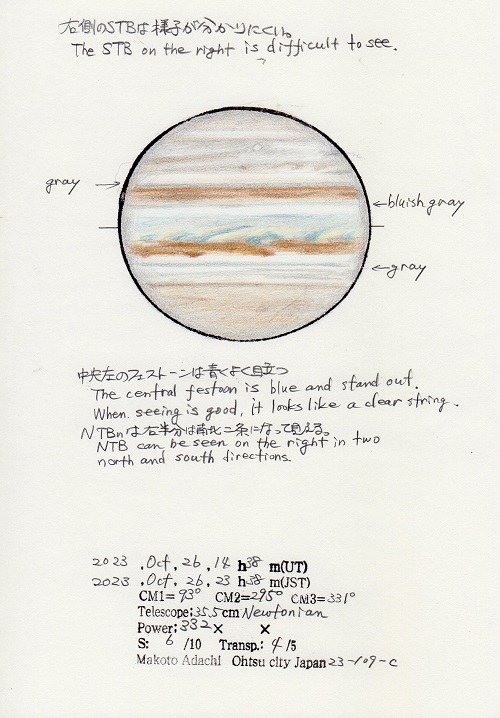 右側のSTBは様子が分かりにくい。
The STB on the right is difficult to see.
gray
bluish gray
gray
中央左のフェストーンは青くよく目立つ
The central festoon is blue and stand out.
When seeing is good, it looks like a clear string.
NTBnは右半分は南北二条になって見える。
NTB can be seen on the right in two
north and south directions.
2023 ,Oct, 26, 14 h 38 m(UT)
2023 ,Oct, 26, 23 h 38 m(JST)
CM1= 93° CM2= 295° CM3= 331°
Telescope; 35.5cm Newtonian
Power; 332× ×
S: 6 /10 Transp.: 4 /5
Makoto Adachi Ohtsu city Japan 23-109-c